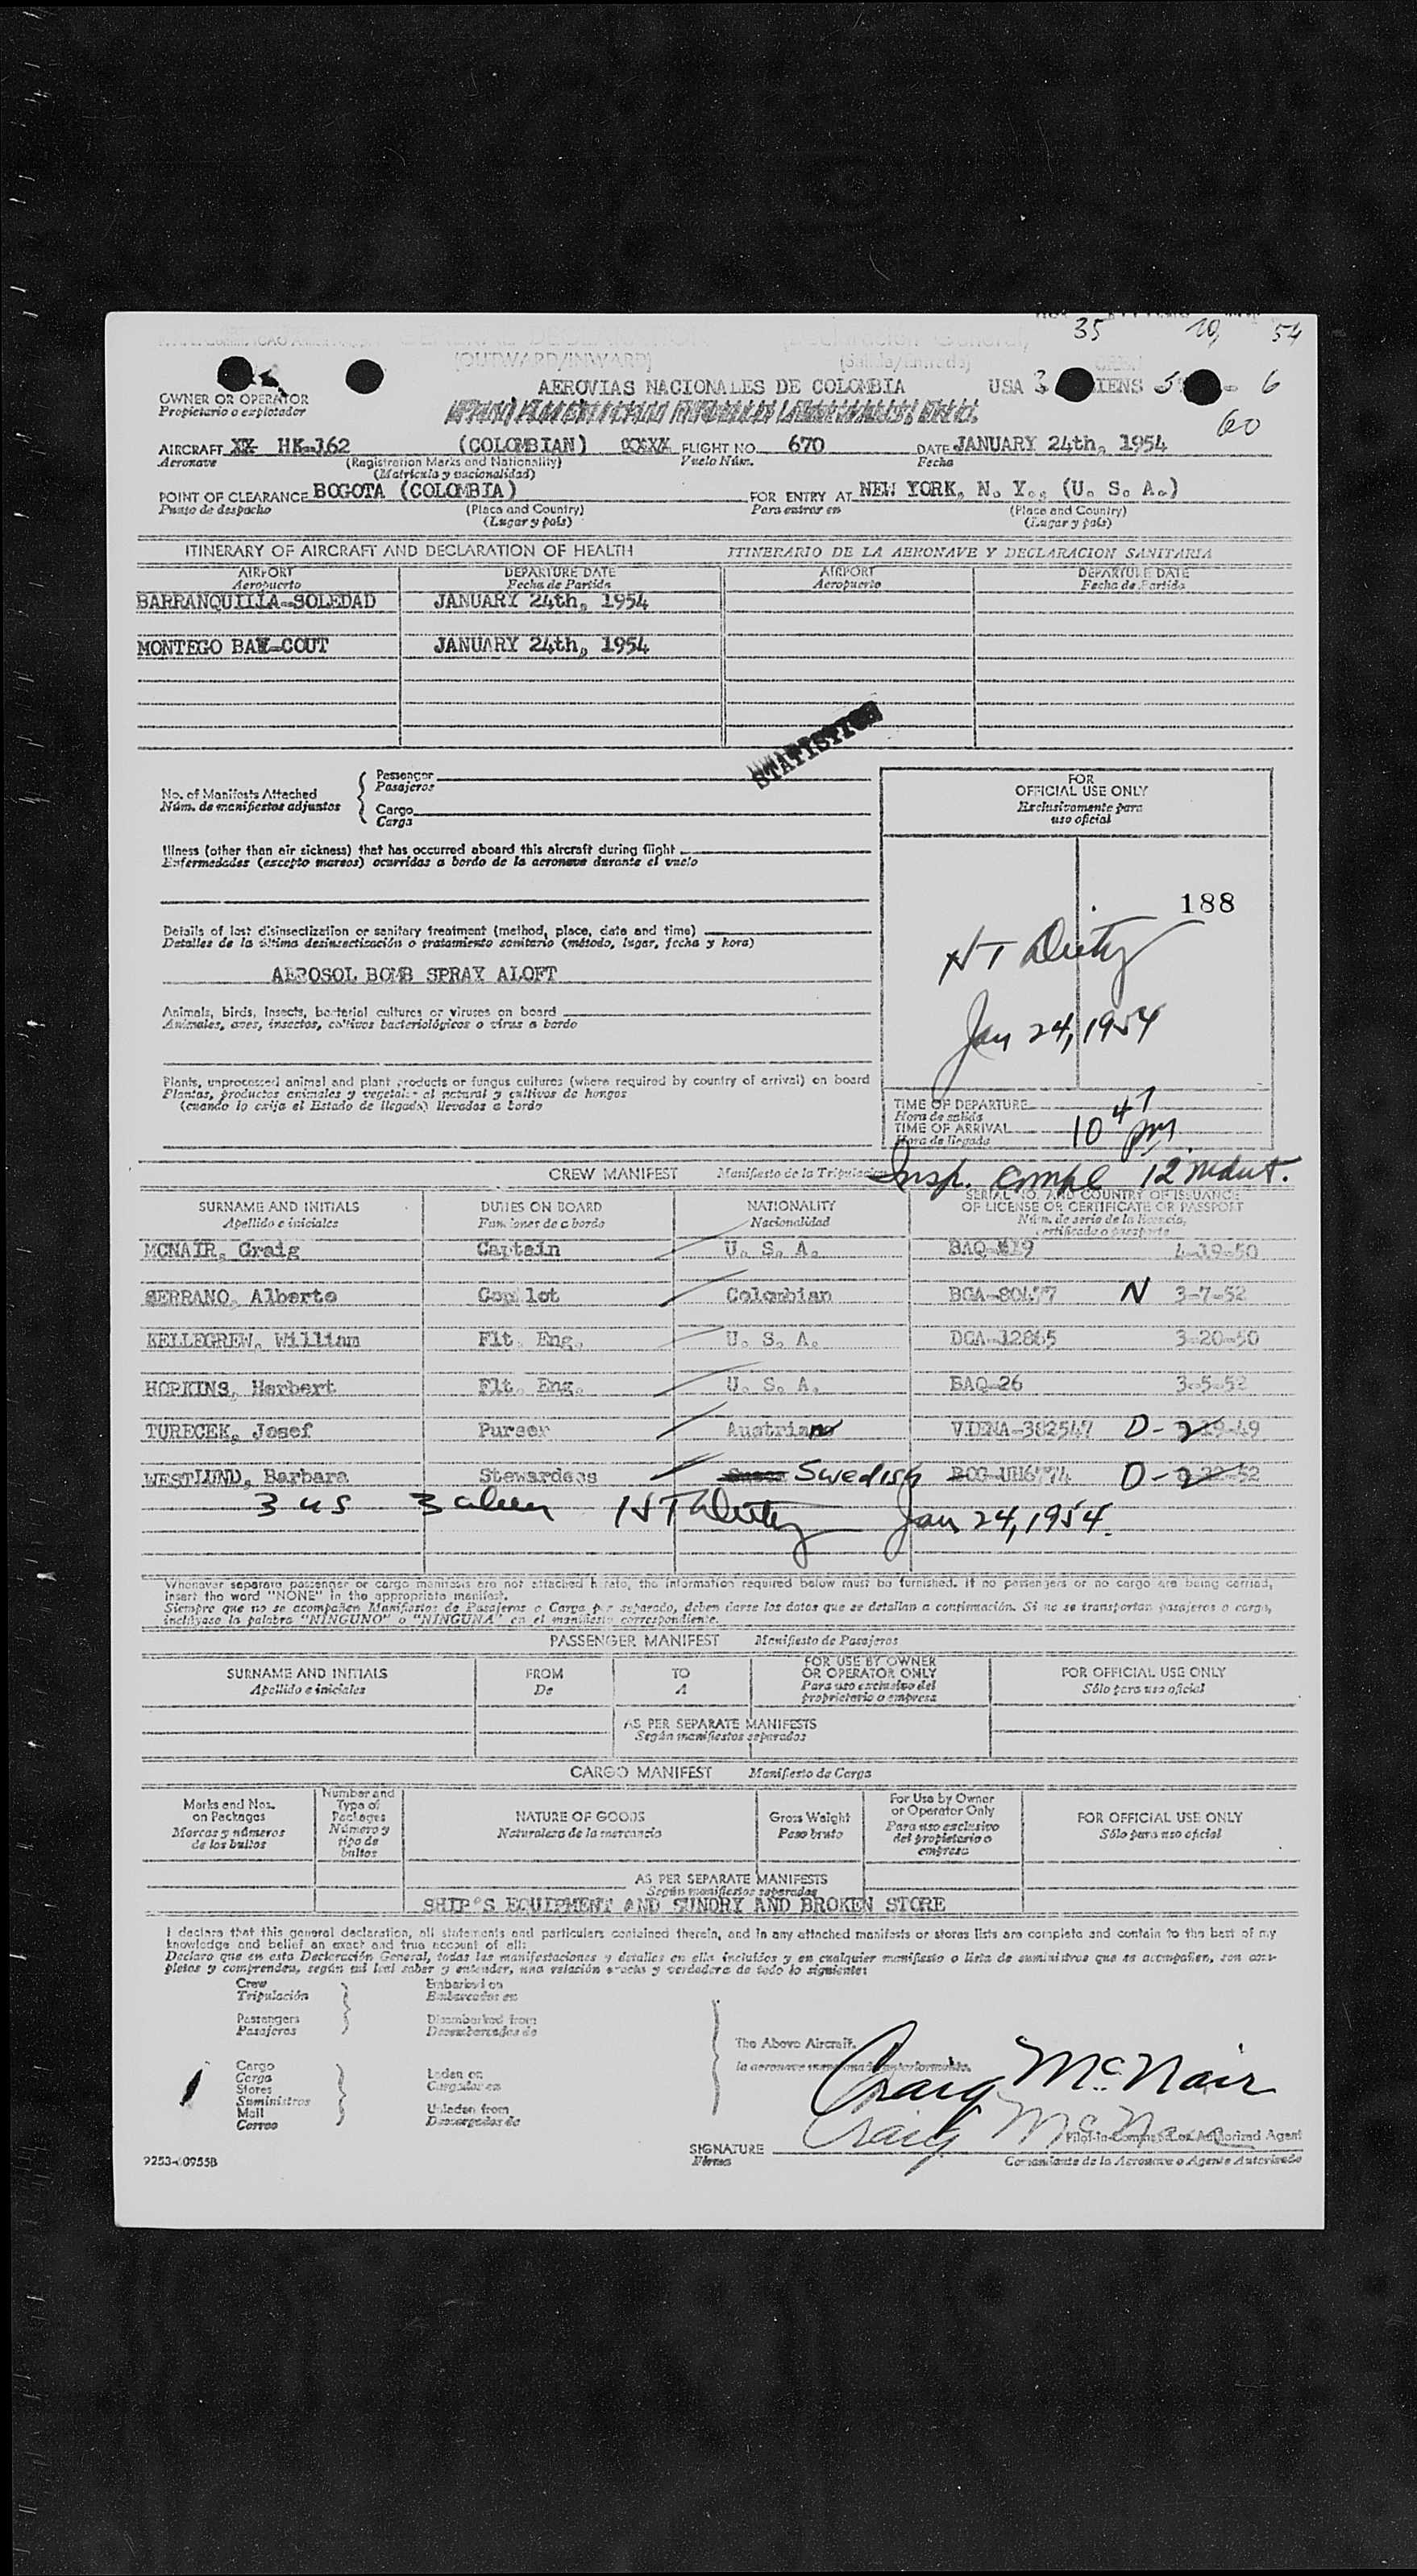 35 10, 54
(OUTWARD/INWARD) (Salida/Entrada)
AEROVIAS NACIONALES DE COLOMBIA USA 3 ALIENS 3 - 6
OWNER OR OPERATOR
Propietario o explotador
60
AIRCRAFT XX HK-162 (COLOMBIAN) XXXX FLIGHT NO. 670 DATE JANUARY 24th, 1954
Aeronave (Registration Marks and Nationality) Vuelo Núm. Fecha
(Matrícula y nacionalidad)
POINT OF CLEARANCE BOGOTA (COLOMBIA) FOR ENTRY AT NEW YORK, N. Y., (U. S. A.)
Punto de despacho (Place and Country) Para entrar en (Place and Country)
(Lugar y país) (Lugar y país)
ITINERARY OF AIRCRAFT AND DECLARATION OF HEALTH ITINERARIO DE LA AERONAVE Y DECLARACION SANITARIA
AIRPORT DEPARTURE DATE AIRPORT DEPARTURE DATE
Aeropuerto Fecha de Partida Aeropuerto Fecha de Partida
BARRANQUILLA-SOLEDAD JANUARY 24th, 1954
MONTEGO BAY-COUT JANUARY 24th, 1954
STATISTICS
No. of Manifests Attached
Núm. de manifiestos adjuntos
Passenger
Pasajeros
Cargo
Carga
FOR
OFFICIAL USE ONLY
Exclusivamente para
uso oficial
Illness (other than air sickness) that has occurred aboard this aircraft during flight
Enfermedades (excepto mareos) ocurridas a bordo de la aeronave durante el vuelo
188
Details of last disinsectization or sanitary treatment (method, place, date and time)
Detalles de la última desinsectización o tratamiento sanitario (método, lugar, fecha y hora)
AEROSOL BOMB SPRAY ALOFT
Jan 24, 1954
Animals, birds, insects, bacterial cultures or viruses on board
Animales, aves, insectos, cultivos bacteriológicos o virus a bordo
Plants, unprocessed animal and plant products or fungus cultures (where required by country of arrival) on board
Plantas, productos animales y vegetales al natural y cultivos de hongos
(cuando lo exija el Estado de llegada) llevados a bordo
TIME OF DEPARTURE
Hora de salida
TIME OF ARRIVAL 10 47 pm
Hora de llegada
CREW MANIFEST Manifiesto de la Tripulación Insp. compl 12 mdnt.
SURNAME AND INITIALS DUTIES ON BOARD NATIONALITY SERIAL NO. AND COUNTRY OF ISSUANCE
Apellido e iniciales Funciones de a bordo Nacionalidad OF LICENSE OR CERTIFICATE OR PASSPORT
Núm. de serie de la licencia,
certificado o pasaporte
MCNAIR, Graig Captain U. S. A. BAQ-819 4-19-50
SERRANO, Alberto Copilot Colombian BGA-80477 N 3-7-52
KELLEGREW, William Flt. Eng. U. S. A. DCA-12865 3-20-50
HOPKINS, Herbert Flt. Eng. U. S. A. BAQ-26 3-5-52
TURECEK, Josef Purser Austrian VIENA-382547 D-2 49
WESTLUND, Barbara Stewardess Swedish D-2 52
3 us 3 alien Jan 24, 1954.
Whenever separate passenger or cargo manifests are not attached hereto, the information required below must be furnished. If no passengers or no cargo are being carried,
insert the word "NONE" in the appropriate manifest.
Siempre que no se acompañen Manifiestos de Pasajeros o Carga por separado, deben darse los datos que se detallan a continuación. Si no se transportan pasajeros o carga,
inclúyase la palabra "NINGUNO" o "NINGUNA" en el manifiesto correspondiente.
PASSENGER MANIFEST Manifiesto de Pasajeros
SURNAME AND INITIALS FROM TO FOR USE BY OWNER OR OPERATOR ONLY FOR OFFICIAL USE ONLY
Apellido e iniciales De A Para uso exclusivo del propietario o empresa Sólo para uso oficial
AS PER SEPARATE MANIFESTS
Según manifiestos separados
CARGO MANIFEST Manifiesto de Carga
Marks and Nos. on Packages Number and Type of Packages NATURE OF GOODS Gross Weight For Use by Owner or Operator Only FOR OFFICIAL USE ONLY
Marcas y números de los bultos Número y tipo de bultos Naturaleza de la mercancía Peso bruto Para uso exclusivo del propietario o empresa Sólo para uso oficial
AS PER SEPARATE MANIFESTS
Según manifiestos separados
SHIP'S EQUIPMENT AND SUNDRY AND BROKEN STORE
I declare that this general declaration, all statements and particulars contained therein, and in any attached manifests or stores lists are complete and contain to the best of my
knowledge and belief an exact and true account of all:
Declaro que en esta Declaración General, todas las manifestaciones y detalles en ella incluidos y en cualquier manifiesto o lista de suministros que se acompañen, son com-
pletos y comprenden, según mi leal saber y entender, una relación exacta y verdadera de todo lo siguiente:
Crew Embarked on
Tripulación Embarcados en
Passengers Disembarked from
Pasajeros Desembarcados de
The Above Aircraft.
la aeronave mencionada anteriormente.
Cargo Laden on
Carga Cargados en
Stores
Suministros
Mail Unladen from
Correo Descargados de
Craig McNair
Craig McNair
Pilot-in-Command or Authorized Agent
SIGNATURE
Firma Comandante de la Aeronave o Agente Autorizado
9253-60955B